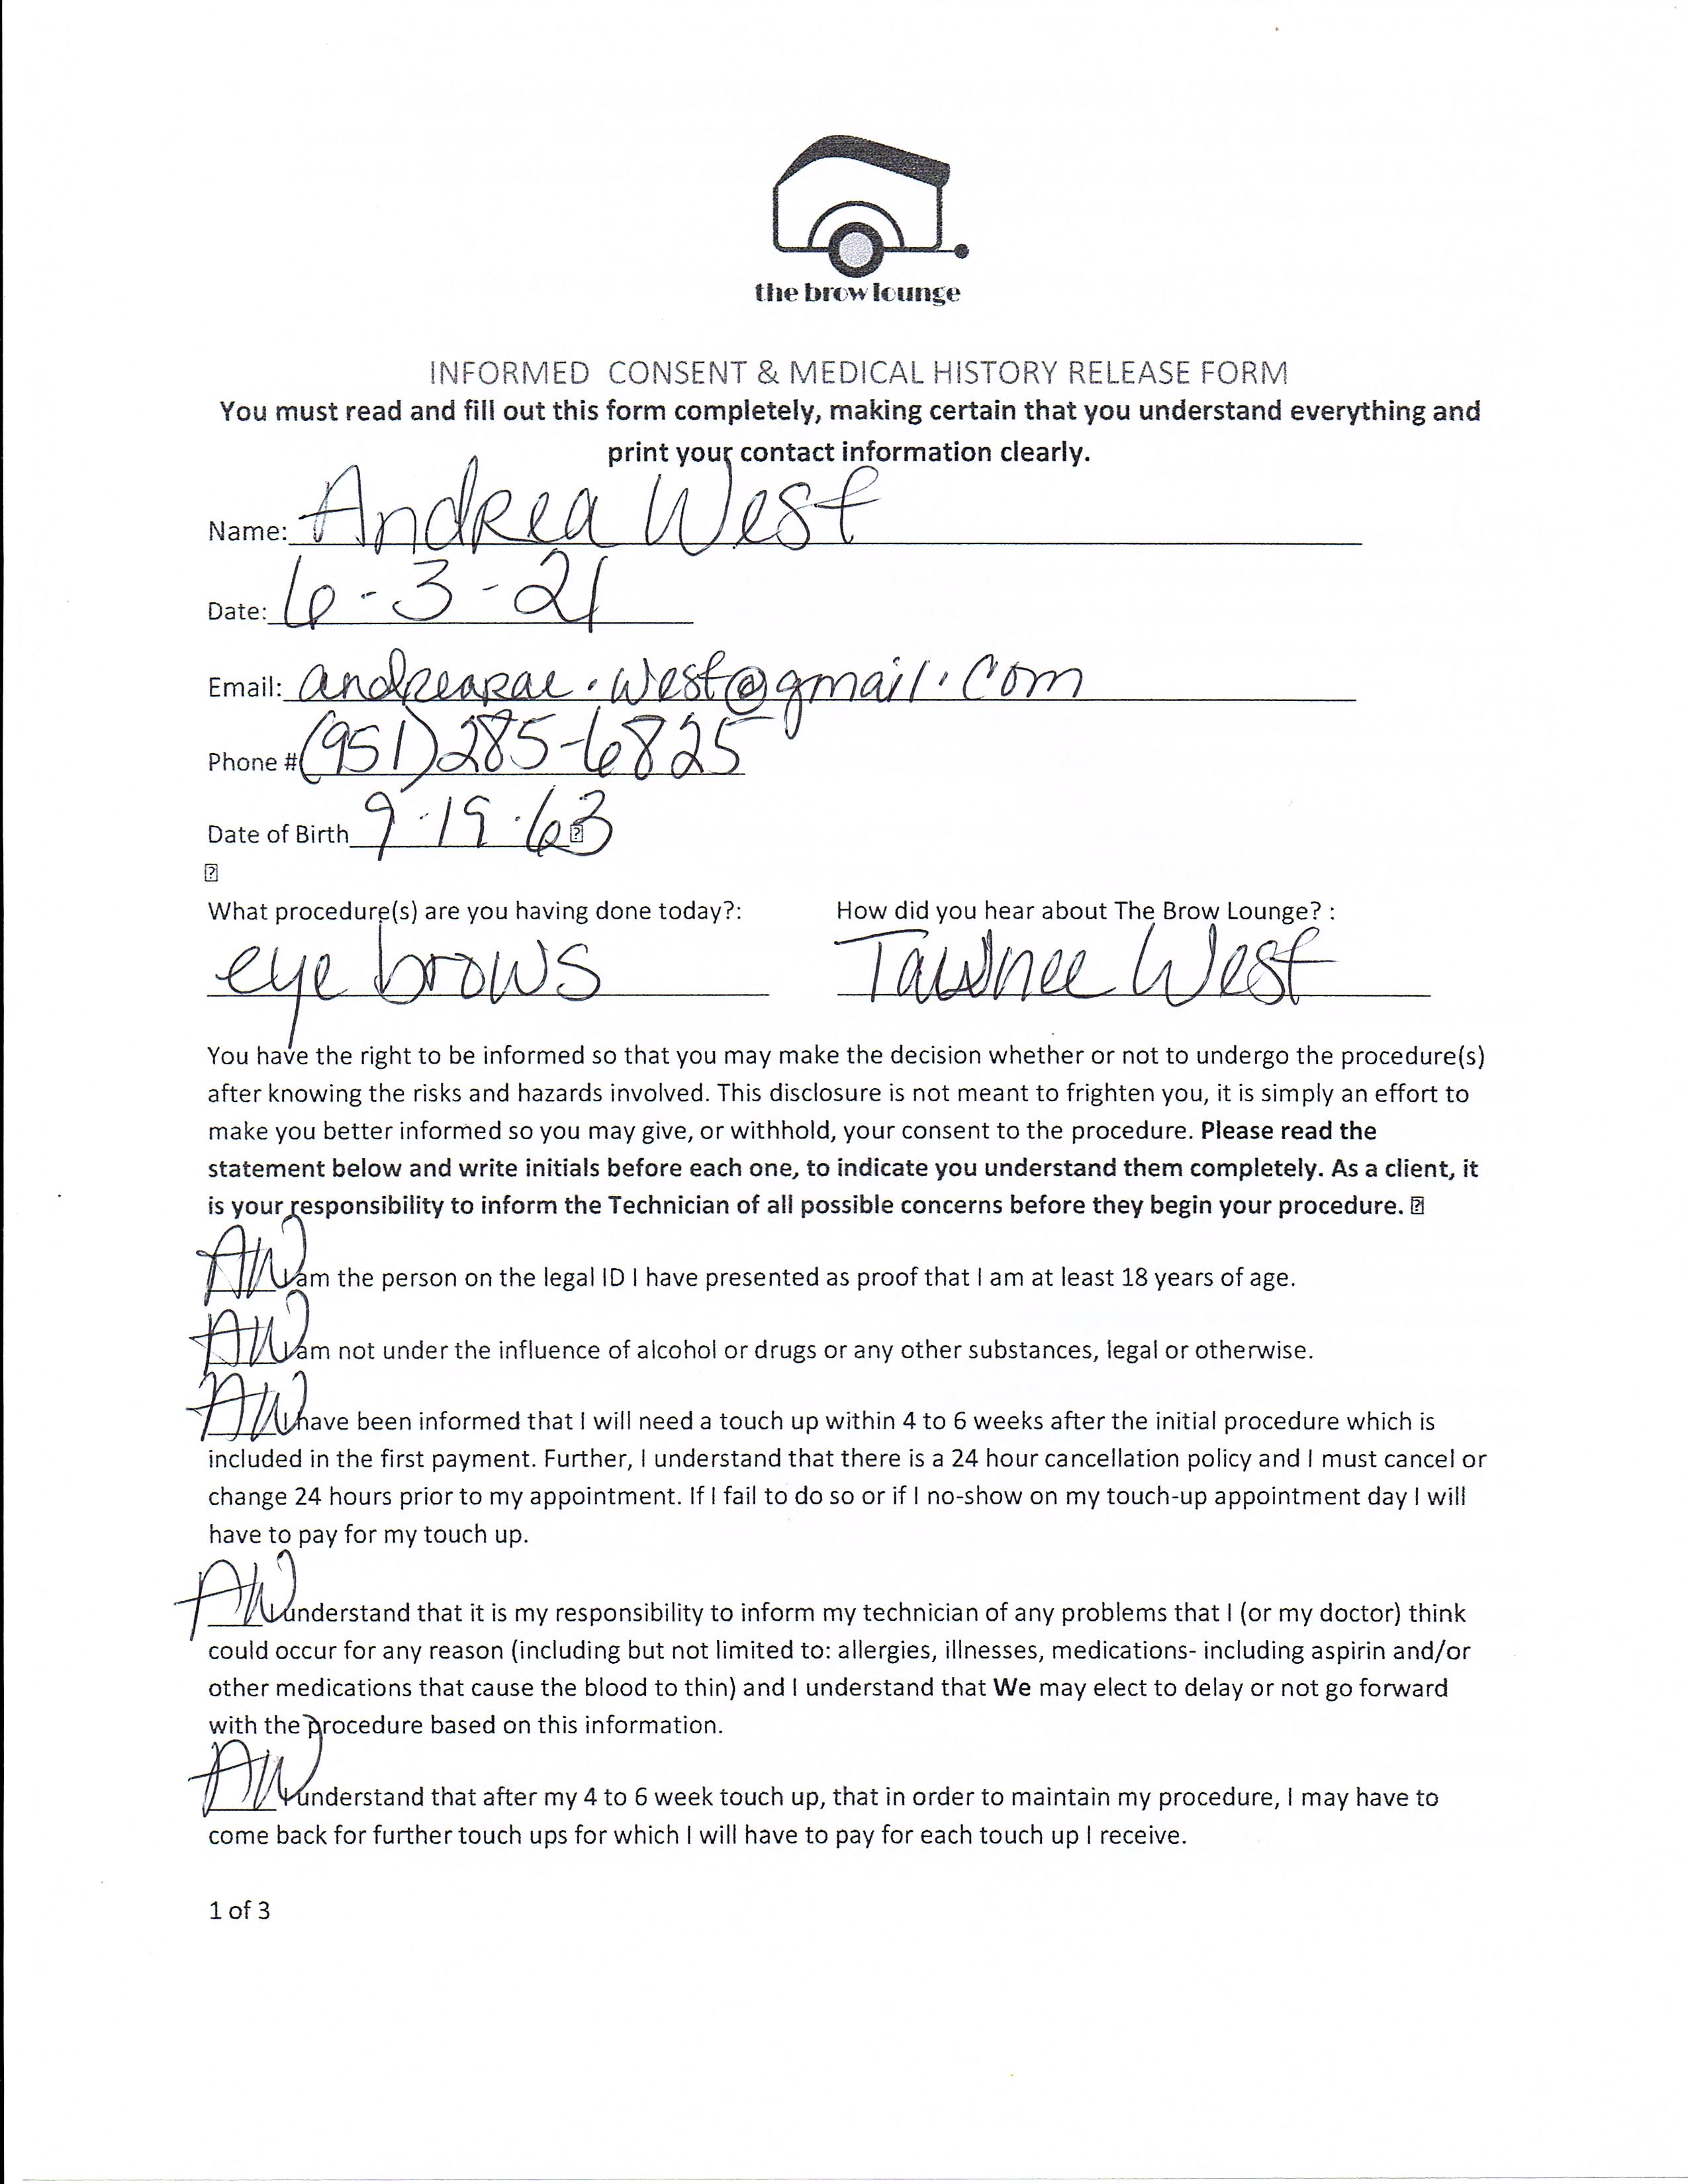 the brow lounge
INFORMED CONSENT & MEDICAL HISTORY RELEASE FORM
You must read and fill out this form completely, making certain that you understand everything and
print your contact information clearly.
Name: Andrea West
Date: 6-3-21
Email: andrearae.west@gmail.com
Phone # (951)285-6825
Date of Birth 9.19.63
What procedure(s) are you having done today?: How did you hear about The Brow Lounge? :
eye brows Tawnee West
You have the right to be informed so that you may make the decision whether or not to undergo the procedure(s)
after knowing the risks and hazards involved. This disclosure is not meant to frighten you, it is simply an effort to
make you better informed so you may give, or withhold, your consent to the procedure. Please read the
statement below and write initials before each one, to indicate you understand them completely. As a client, it
is your responsibility to inform the Technician of all possible concerns before they begin your procedure.
AW am the person on the legal ID I have presented as proof that I am at least 18 years of age.
AW am not under the influence of alcohol or drugs or any other substances, legal or otherwise.
AW have been informed that I will need a touch up within 4 to 6 weeks after the initial procedure which is
included in the first payment. Further, I understand that there is a 24 hour cancellation policy and I must cancel or
change 24 hours prior to my appointment. If I fail to do so or if I no-show on my touch-up appointment day I will
have to pay for my touch up.
AW understand that it is my responsibility to inform my technician of any problems that I (or my doctor) think
could occur for any reason (including but not limited to: allergies, illnesses, medications- including aspirin and/or
other medications that cause the blood to thin) and I understand that We may elect to delay or not go forward
with the procedure based on this information.
AW understand that after my 4 to 6 week touch up, that in order to maintain my procedure, I may have to
come back for further touch ups for which I will have to pay for each touch up I receive.
1 of 3